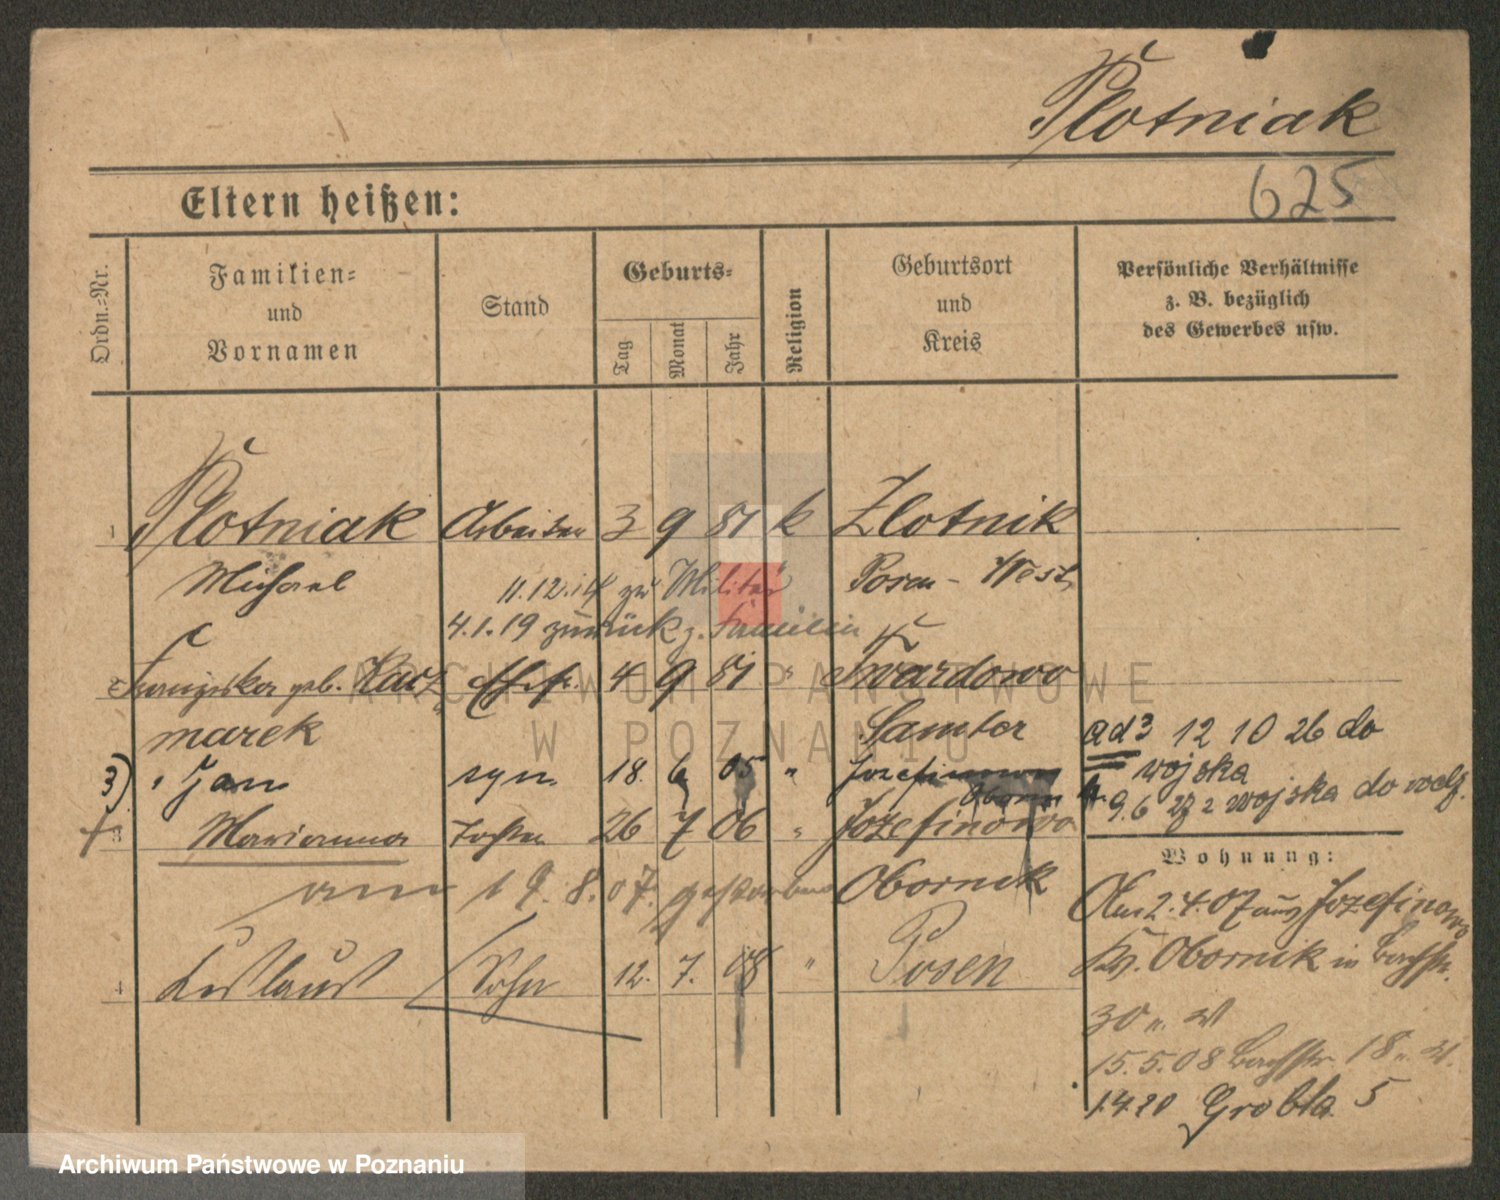 Plotniak
625
Eltern heißen:
Ordn.-Nr.
Familien-
und
Vornamen
Stand
Geburts-
Tag
Monat
Jahr
Religion
Geburtsort
und
Kreis
Persönliche Verhältnisse
z. B. bezüglich
des Gewerbes usw.
1 Plotniak Arbeiter 3 9 81 k Zlotnik
Michael 11.12.14 zu Militär Posen - West
4.1.19 zurück z. Familie
Franziska geb. Kacz Ehefr. 4 9 81 " Twardowo
marek Samter ad 3 12 10 26 do
wojska
3) Jan syn 18. 6 05 " Jozefinowo
Obornik 9.6 27 z wojska do
3 Marianna Tochter 26 7 06 " Jozefinowo
Obornik
am 19.8.07. gestorben
4 Sohn 12. 7. 08 " Posen
Wohnung:
Am 2.4.07 aus Jozefinowo
Kr. Obornik in Bachstr.
30 n. W
15.5.08 Bachstr. 18 n. W.
1.4.20 Grobla 5
ARCHIWUM PAŃSTWOWE
W POZNANIU
Archiwum Państwowe w Poznaniu